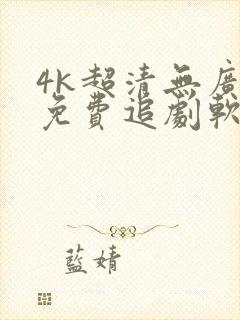 4k超清無廣
免費追劇軟
藍婧